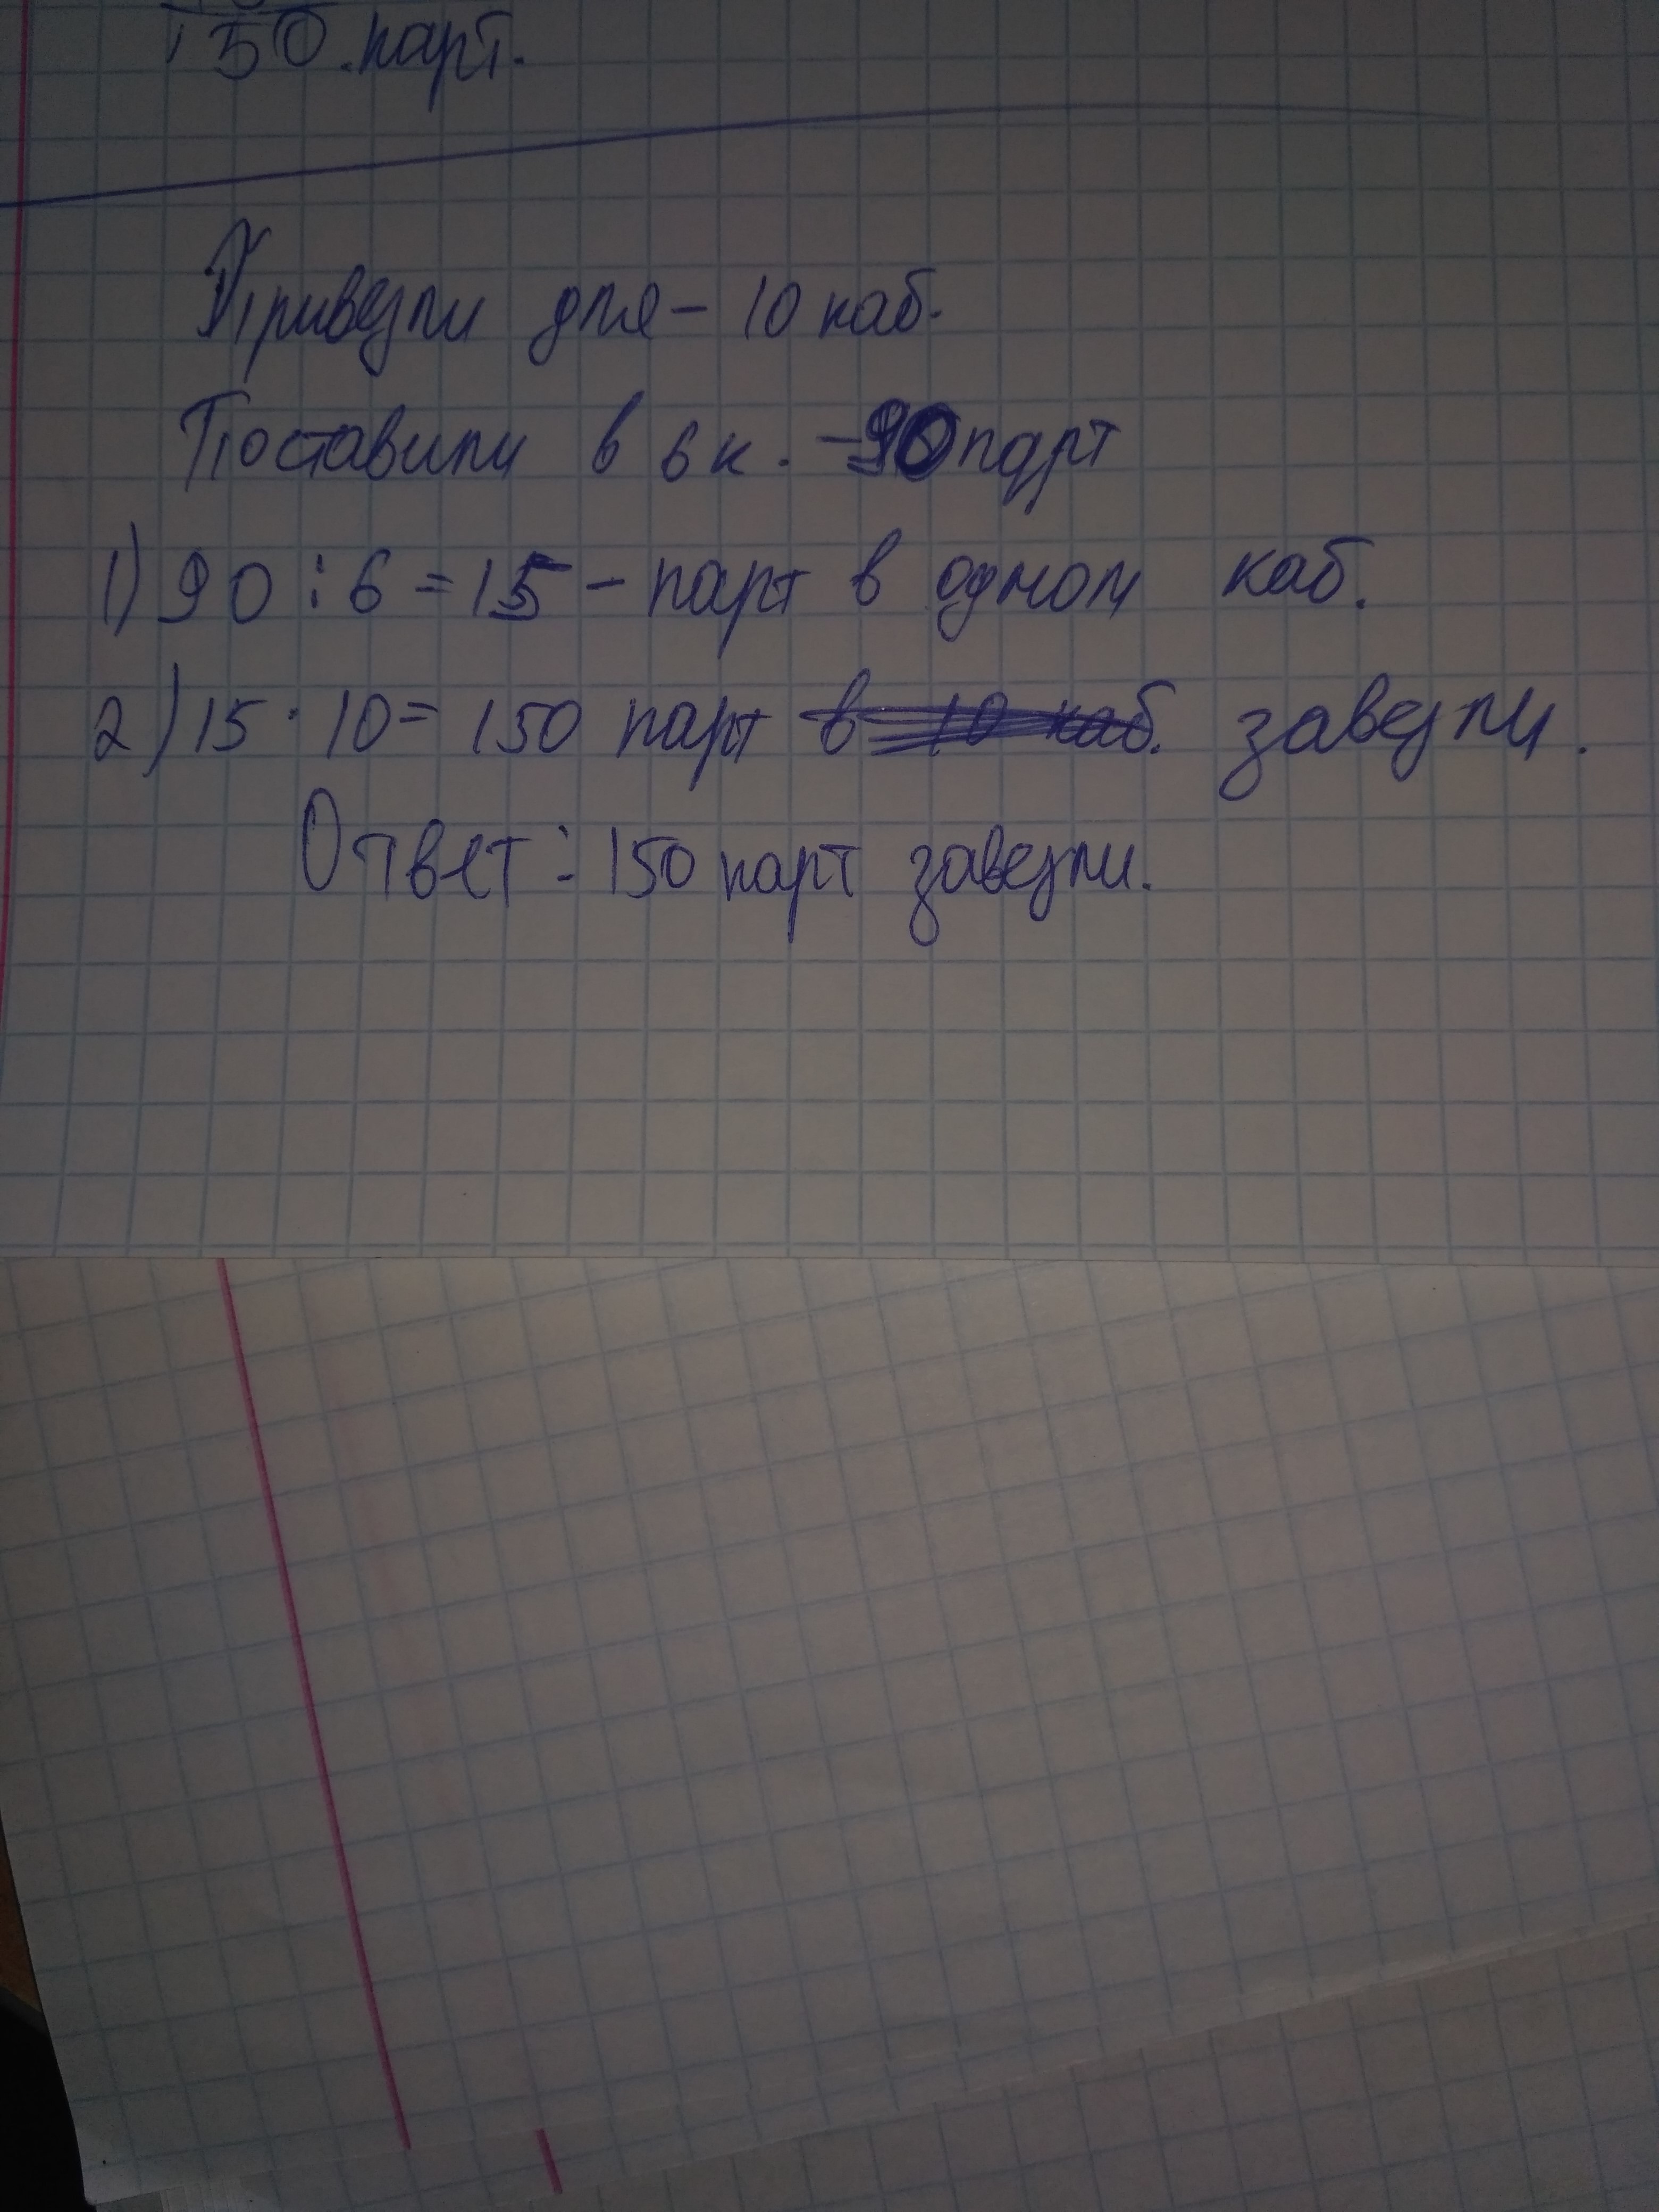 150 парт.
Привезли для - 10 каб.
Поставили в 6 к. - 90 парт
1) 90 : 6 = 15 - парт в одном каб.
2) 15 · 10 = 150 парт в 10 каб. завезли.
Ответ: 150 парт завезли.